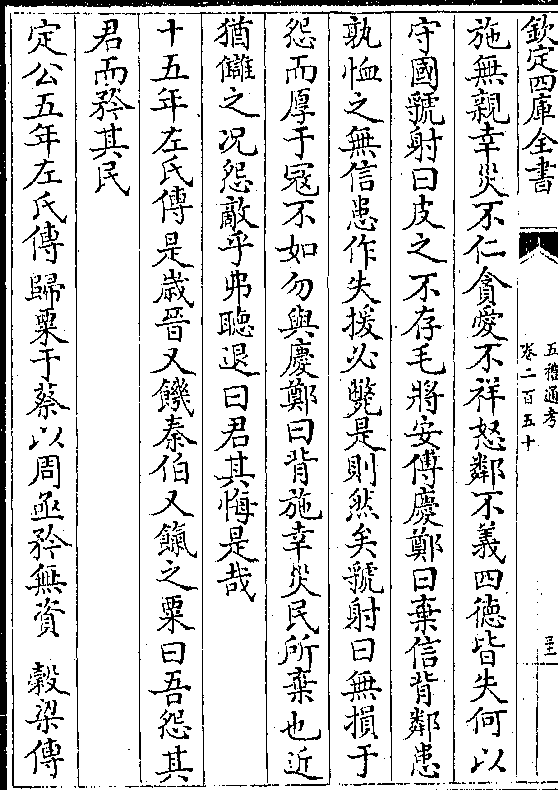 欽定四庫全書
五禮通考
卷二百五十
施無親幸災不仁貪愛不祥怒鄰不義四徳皆失何以
守國虢射曰皮之不存毛將安傅慶鄭曰棄信背鄰患
孰恤之無信患作失援必斃是則然矣虢射曰無損于
怨而厚于寇不如勿與慶鄭曰背施幸災民所棄也近
猶讎之况怨敵乎弗聽退曰君其悔是哉
十五年左氏傳是歲晉又饑秦伯又餼之粟曰吾怨其
君而矜其民
定公五年左氏傳歸粟于蔡以周亟矜無資　穀梁傳